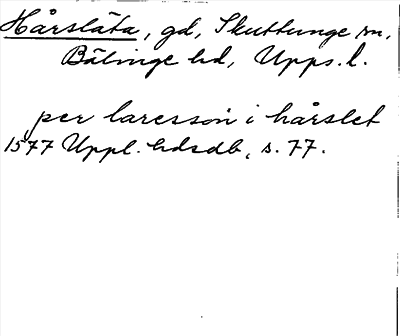 Hårsläta, gd, Skuttunge sn,
Bälinge hd, Upps. l.
per larsson i hårslet
1577 Uppl. hdsdb, s. 77.